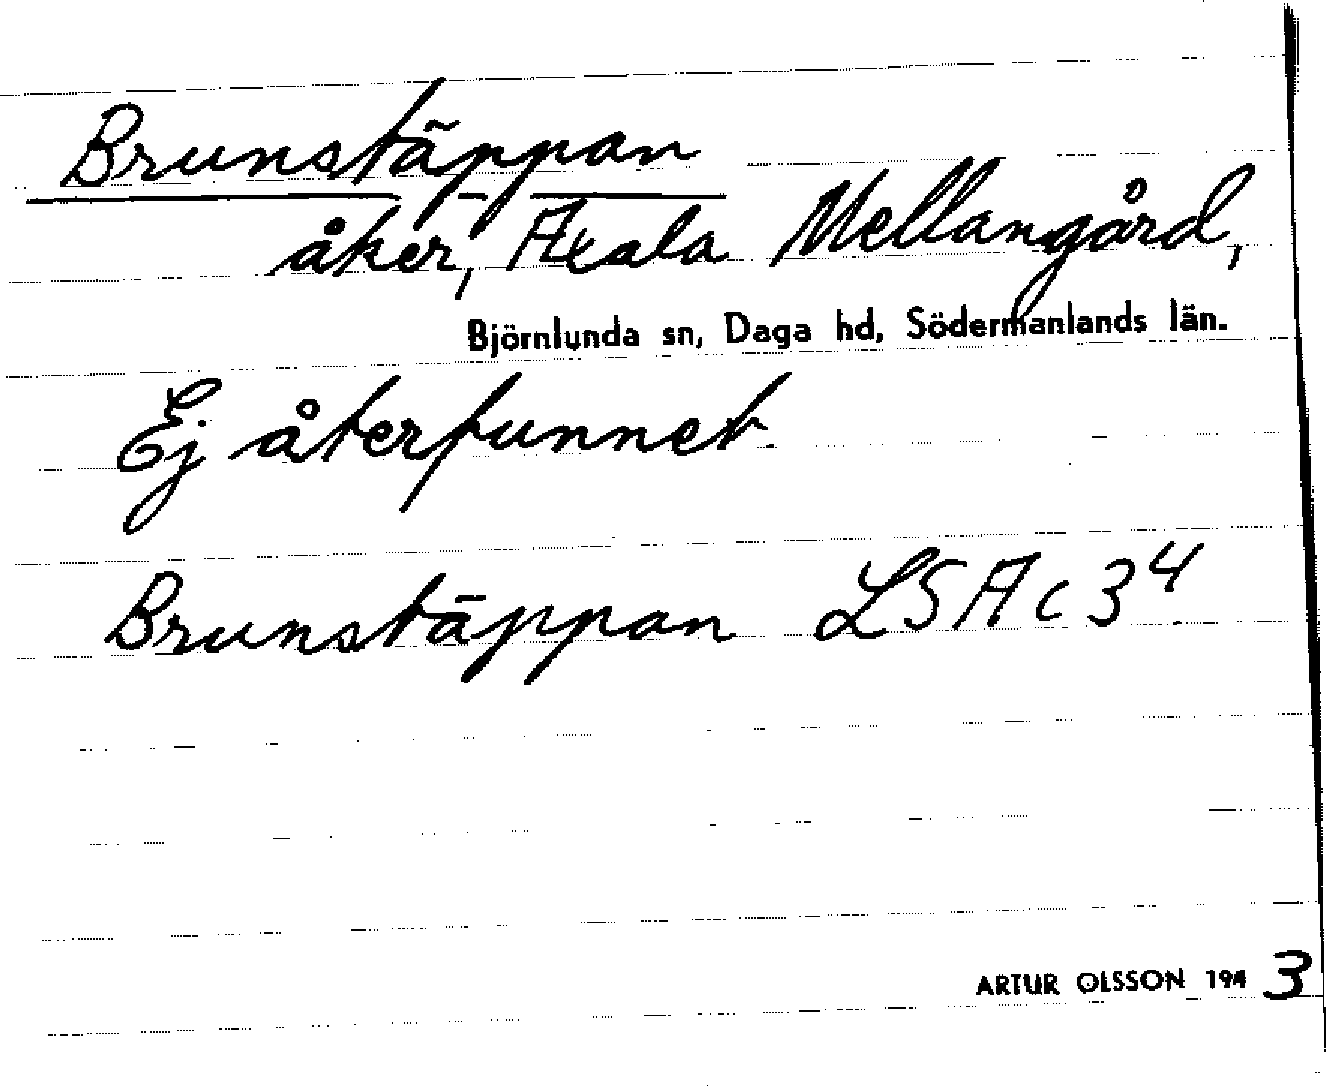 Brunstäppan
åker, Axala Mellangård,
Björnlunda sn, Daga hd, Södermanlands län.
Ej återfunnet
Brunstäppan LSA c 3⁴
ARTUR OLSSON 1943